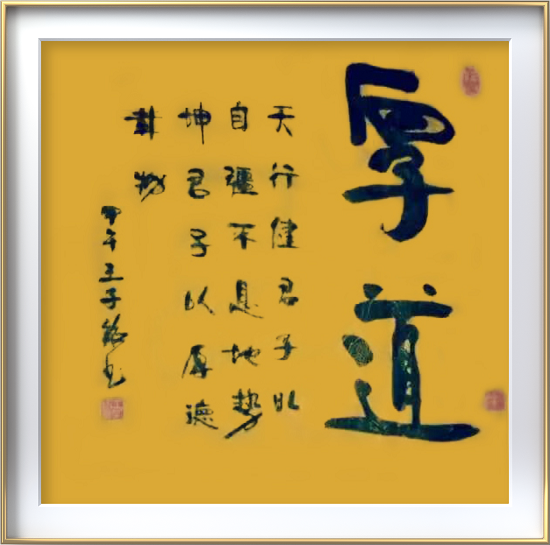 厚道
天行健君子以
自彊不息地势
坤君子以厚德
载物
甲午王子书